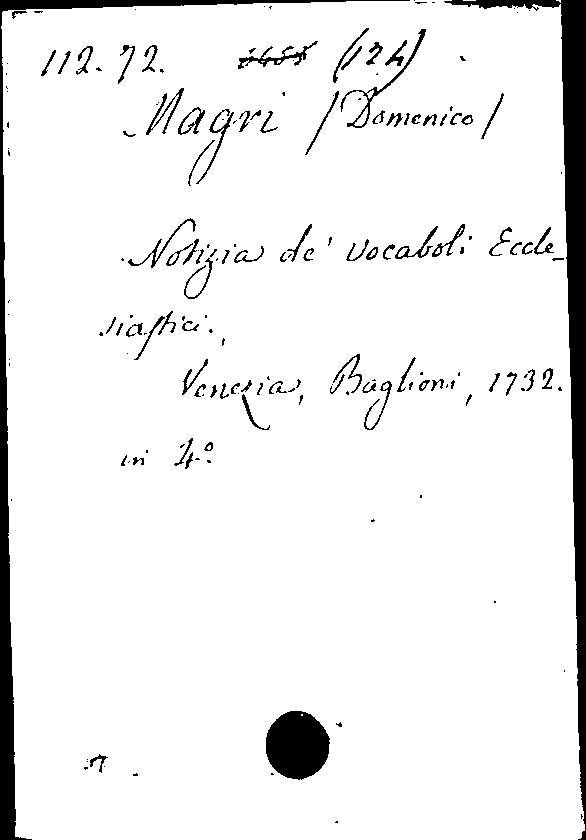 112. 72. (124)
Magri /Domenico/
Notizia de' vocaboli Eccle-
siastici.
Venezia, Baglioni, 1732.
in 4°